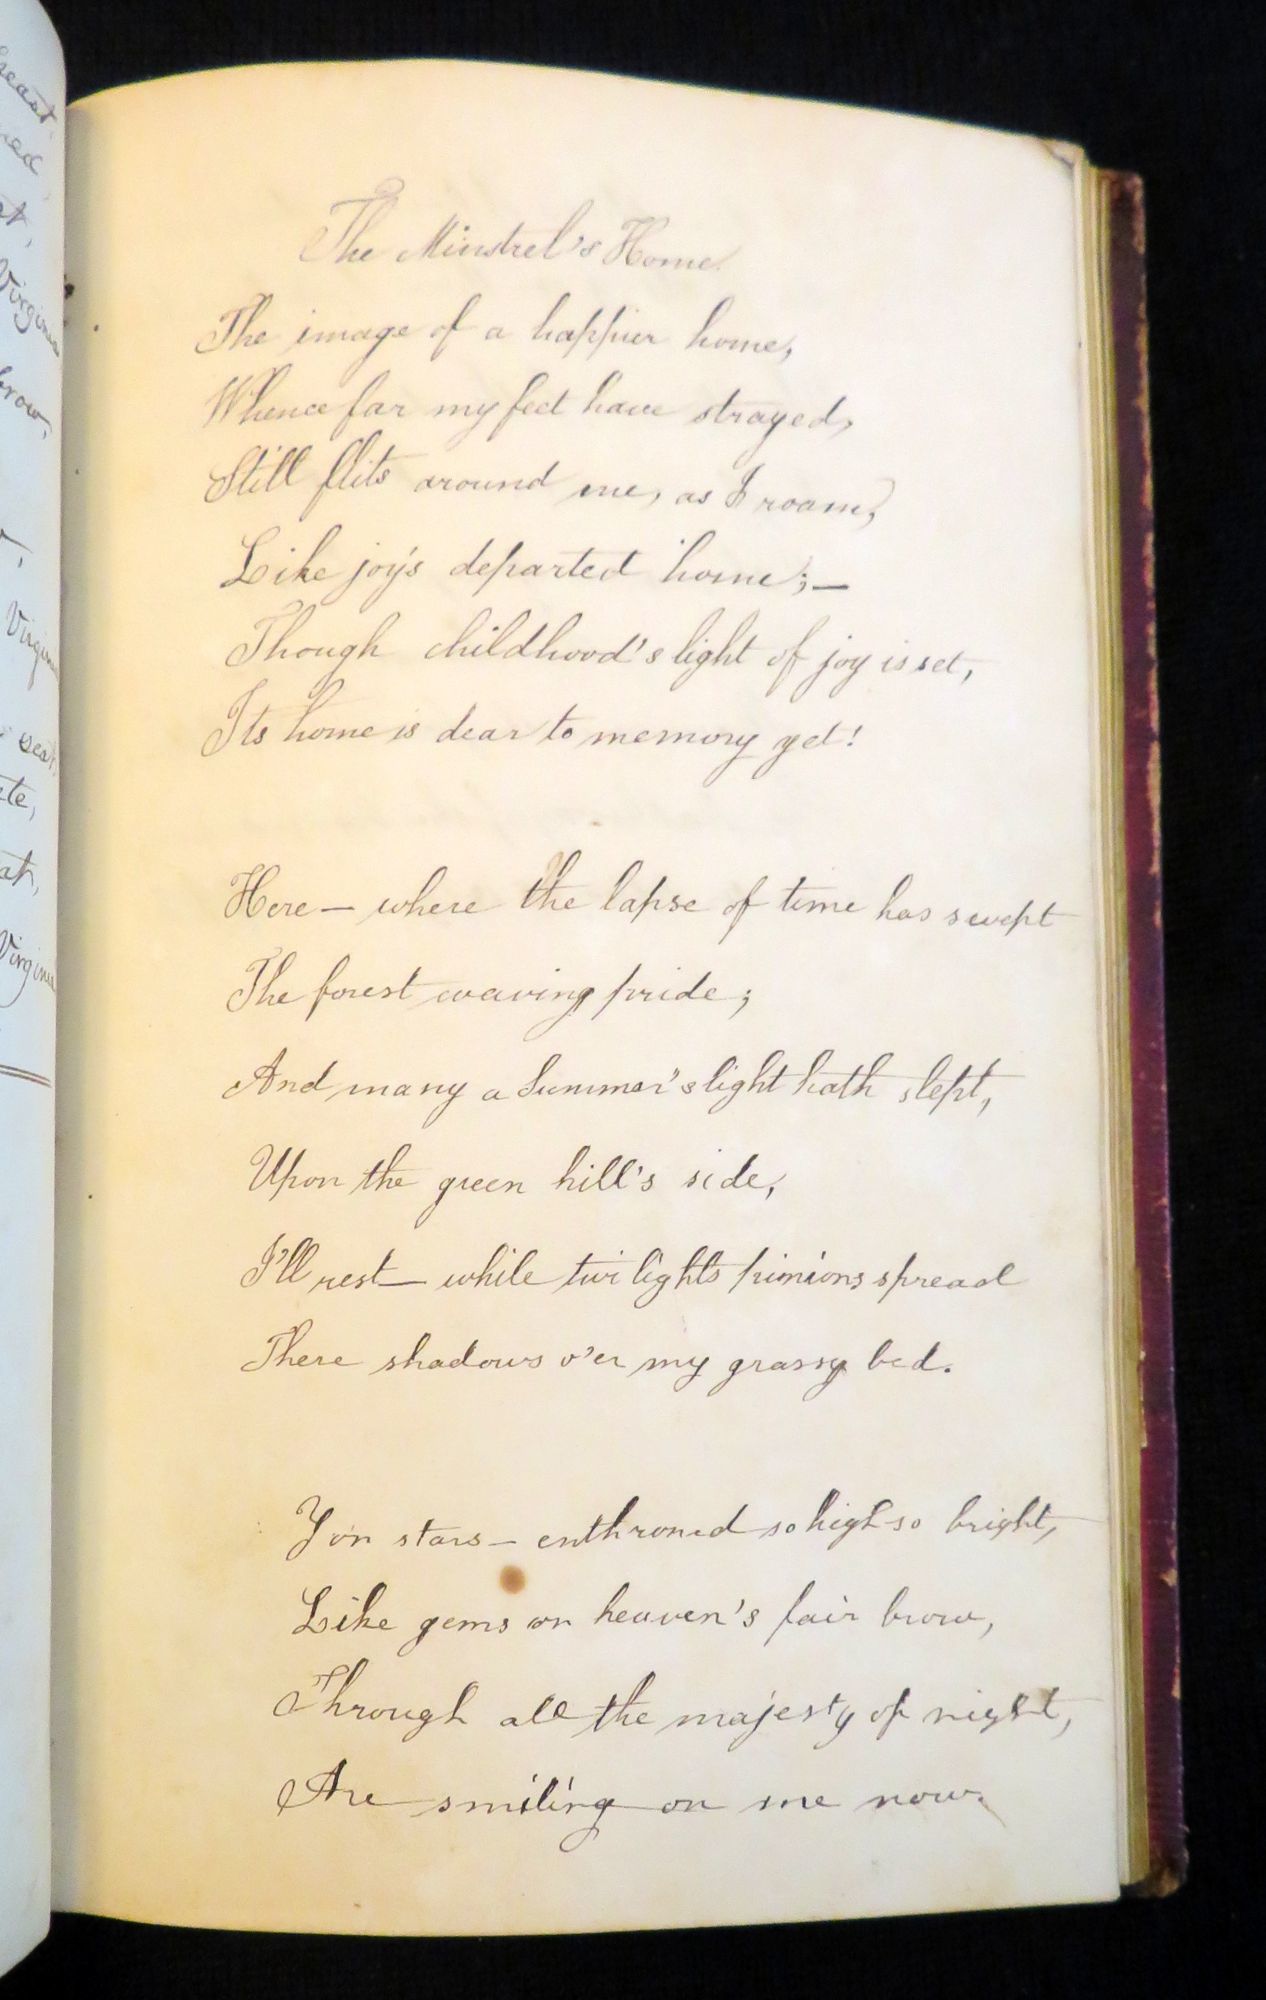 The Minstrel's Home.
The image of a happier home,
Whence far my feet have strayed,
Still flits around me, as I roam,
Like joy's departed home; —
Though childhood's light of joy is set,
Its home is dear to memory yet!
Here — where the lapse of time has swept
The forest waving pride;
And many a Summer's light hath slept,
Upon the green hill's side,
I'll rest — while twilights pinions spread
There shadows o'er my grassy bed.
Yon stars — enthroned so high so bright,
Like gems on heaven's fair brow,
Through all the majesty of night,
Are smiling on me now.
Virginia
brow,
Virginia
seat,
Virginia